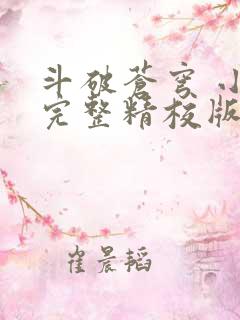 斗破苍穹 小
完整精校版
崔晨韬